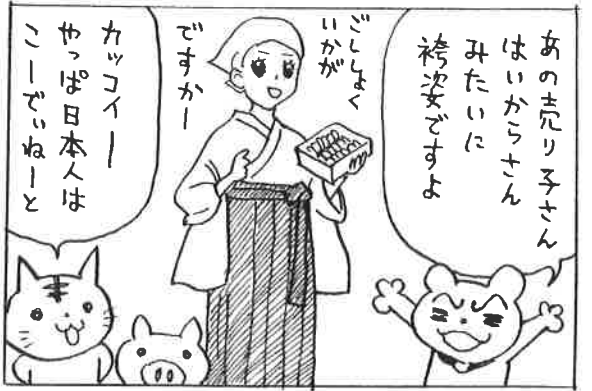 あの売り子さん
はいからさん
みたいに
袴姿ですよ
ごししょく
いかが
ですかー
カッコイー
やっぱ日本人は
こーでぃねーと